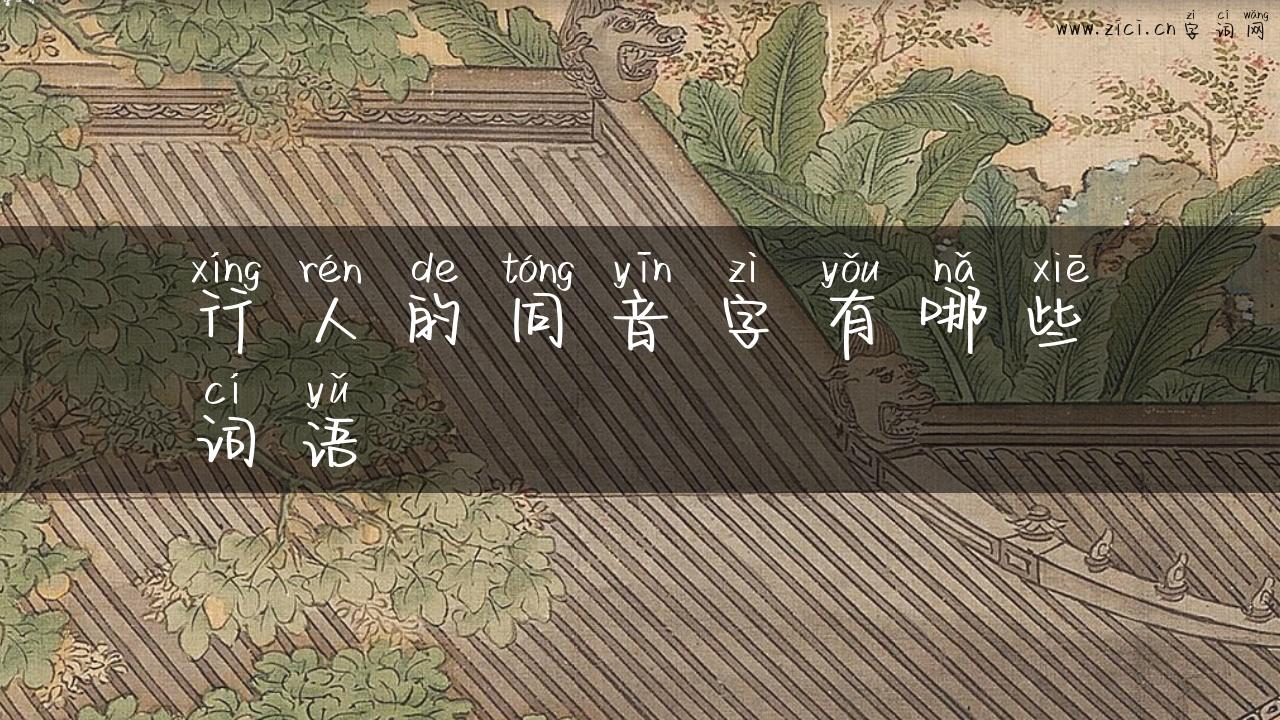 zì cí wǎng
www.zici.cn 字词网
xíng rén de tóng yīn zì yǒu nǎ xiē
行人的同音字有哪些
cí yǔ
词语